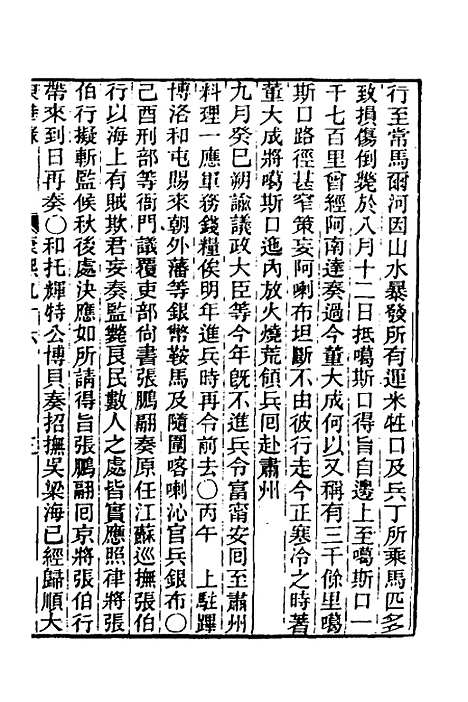 行至常馬爾河因山水暴發所有運米牲口及兵丁所乘馬匹多
致損傷倒斃於八月十二日抵噶斯口得旨自邊上至噶斯口一
千七百里曾經阿南達奏過今董大成何以又稱有三千餘里噶
斯口路徑甚窄策妄阿喇布坦斷不由彼行走今正寒冷之時著
董大成將噶斯口迤內放火燒荒領兵囘赴肅州
九月癸巳朔諭議政大臣等今年旣不進兵令富甯安囘至肅州
料理一應軍務錢糧俟明年進兵時再令前去○丙午　上駐蹕
博洛和屯賜來朝外藩等銀幣鞍馬及隨圍喀喇沁官兵銀布○
己酉刑部等衙門議覆吏部尙書張鵬翮奏原任江蘇巡撫張伯
行以海上有賊欺君妄奏監斃良民數人之處皆實應照律將張
伯行擬斬監候秋後處決應如所請得旨張鵬翮囘京將張伯行
帶來到日再奏○和托輝特公博貝奏招撫吳梁海已經歸順大
東華錄　康熙九十六